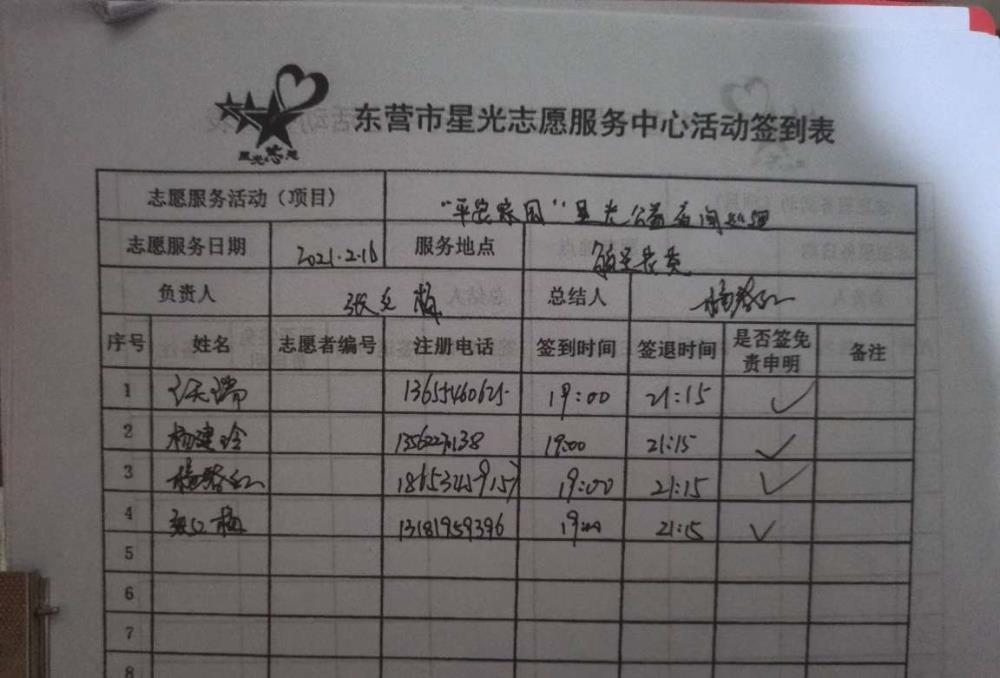 星光志愿
东营市星光志愿服务中心活动签到表
志愿服务活动（项目） "平安家园"星光公益夜间巡逻
志愿服务日期 2021.2.16 服务地点
负责人 张红梅 总结人
序号 姓名 志愿者编号 注册电话 签到时间 签退时间 是否签免责申明 备注
1 13655460625 19:00 21:15 ✓
2 杨建玲 19:00 21:15 ✓
3 19:00 21:15 ✓
4 张红梅 13181959396 19:00 21:15 ✓
5
6
7
8